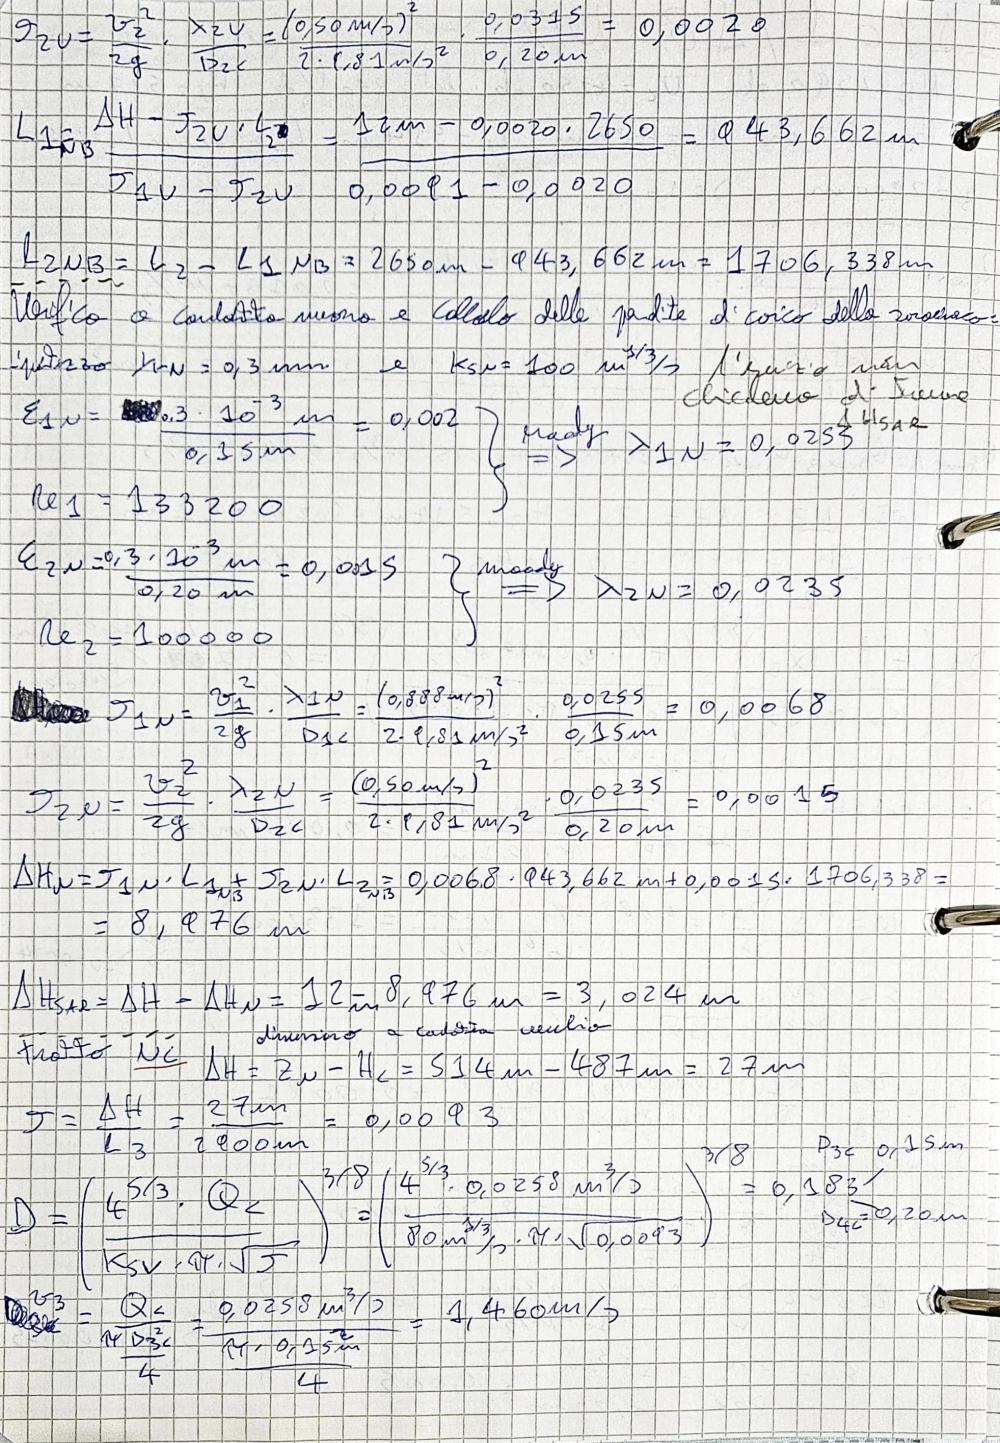 J2U = v2²/2g · λ2U/D2C = (0,50 m/s)²/2·9,81 m/s² · 0,0315/0,20 m = 0,0020
L1NB = ΔH − J2U · L2/J1U − J2U = 12 m − 0,0020 · 2650/0,0091 − 0,0020 = 943,662 m
L2NB = L2 − L1NB = 2650 m − 943,662 m = 1706,338 m
Verifica a condotta nuova e calcolo delle perdite di carico della
ipotizzo γN = 0,3 mm e KSN = 100 m^1/3/s
chiedeva di
ΔHSAR
ε1N = 0,3 · 10⁻³ m/0,15 m = 0,002 } moody => λ1N = 0,0255
Re1 = 133200
ε2N = 0,3 · 10⁻³ m/0,20 m = 0,0015 } moody => λ2N = 0,0235
Re2 = 100000
J1N = v1²/2g · λ1N/D1C = (0,888 m/s)²/2·9,81 m/s² · 0,0255/0,15 m = 0,0068
J2N = v2²/2g · λ2N/D2C = (0,50 m/s)²/2·9,81 m/s² · 0,0235/0,20 m = 0,0015
ΔHN = J1N · L1NB + J2N · L2NB = 0,0068 · 943,662 m + 0,0015 · 1706,338 =
= 8,976 m
ΔHSAR = ΔH − ΔHN = 12 m − 8,976 m = 3,024 m
Tratto NC dimensiono a condotta vecchia
ΔH = ZN − HC = 514 m − 487 m = 27 m
J = ΔH/L3 = 27 m/2900 m = 0,0093
D = (4^5/3 · QC/KSV · π · √J)^3/8 = (4^5/3 · 0,0258 m³/s/80 m^1/3/s · π · √0,0093)^3/8 = 0,183
D3C 0,15 m
D4C = 0,20 m
v3 = QC/πD3C²/4 = 0,0258 m³/s/π · 0,15² m/4 = 1,460 m/s